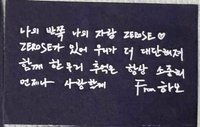 나의 반쪽 나의 자랑 ZEROSE♡
ZEROSE가 있어 우리가 더 대단해져
함께 한 우리 추억은 항상 소중히
언제나 사랑할게 From 하오